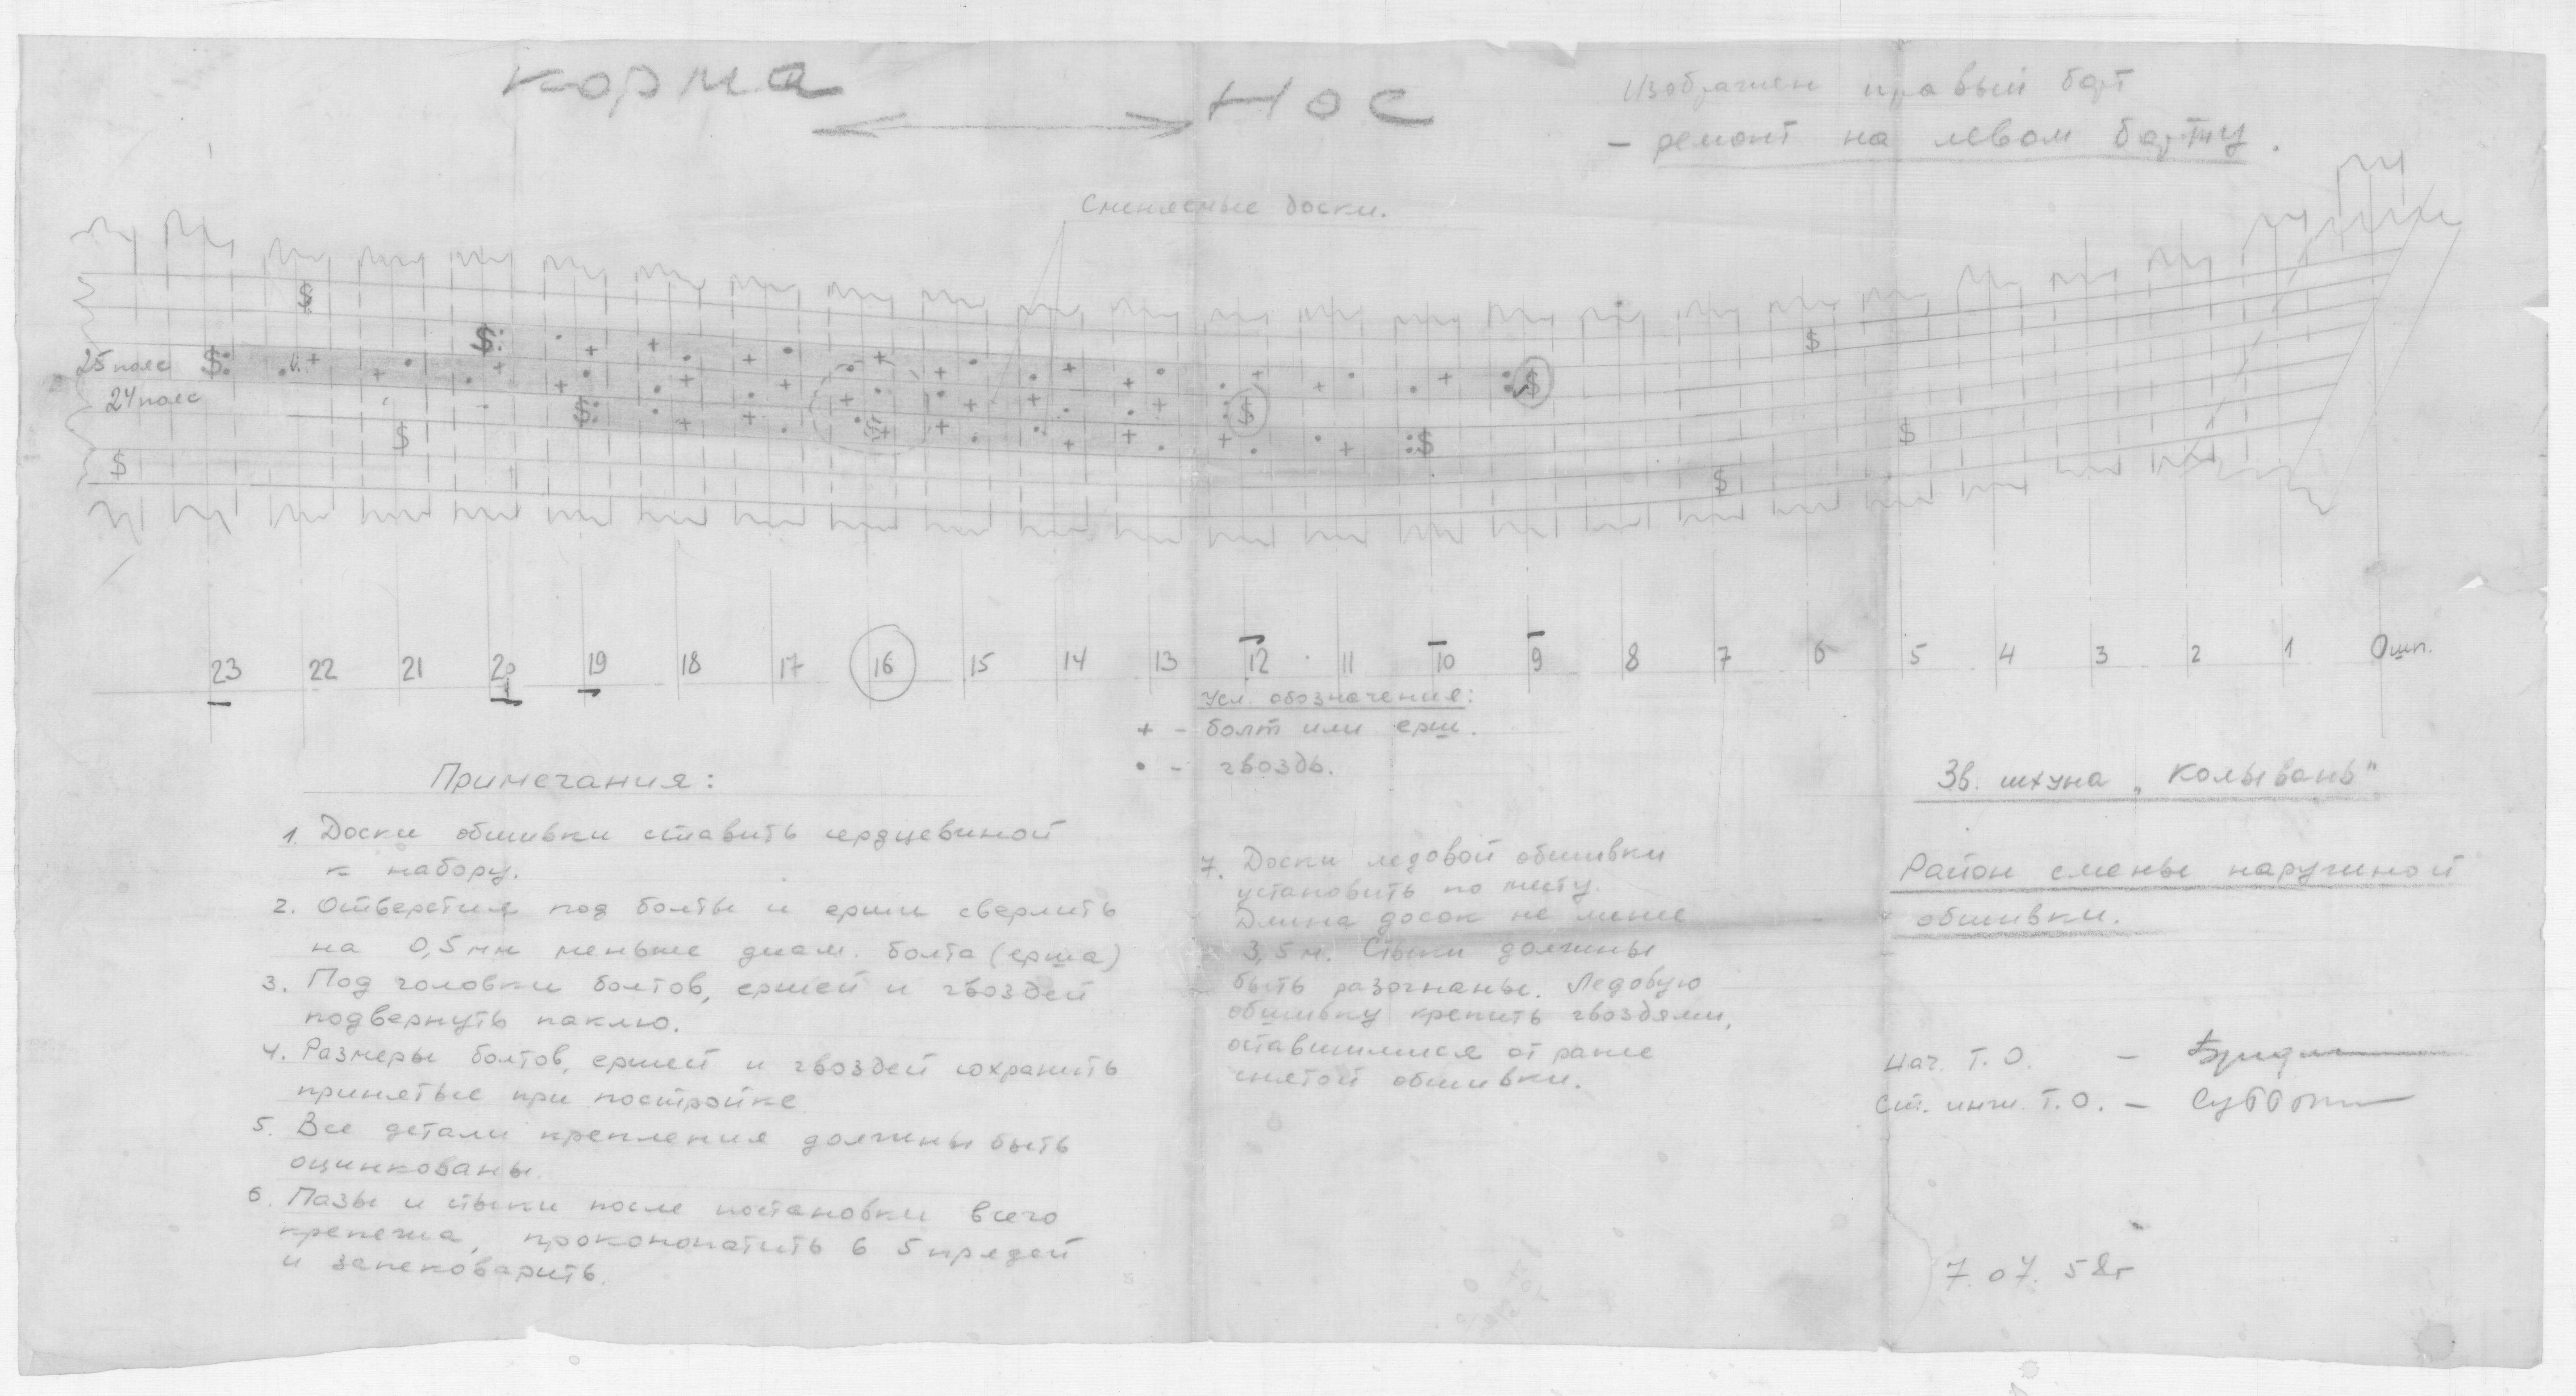 корма
нос
Изображен правый борт
- ремонт на левом борту.
Сменяемые доски.
25 пояс
24 пояс
23 22 21 20 19 18 17 16 15 14 13 12 11 10 9 8 7 6 5 4 3 2 1 0 шп.
Усл. обозначения:
+ - болт или ерш.
• - гвоздь.
Примечания:
1. Доски обшивки ставить сердцевиной
к набору.
2. Отверстия под болты и ерши сверлить
на 0,5 мм меньше диам. болта (ерша)
3. Под головки болтов, ершей и гвоздей
подвернуть паклю.
4. Размеры болтов, ершей и гвоздей сохранить
принятые при постройке
5. Все детали крепления должны быть
оцинкованы.
6. Пазы и стыки после постановки всего
крепежа, проконопатить в 5 прядей
и запековарить.
7. Доски ледовой обшивки
установить по месту.
Длина досок не менее
3,5 м. Стыки должны
быть разогнаны. Ледовую
обшивку крепить гвоздями,
оставшимися от ранее
снятой обшивки.
Зв. шхуна „Колывань"
Район смены наружной
обшивки.
Нач. Т.О. -
Ст. инж. Т.О. -
7.07.58г